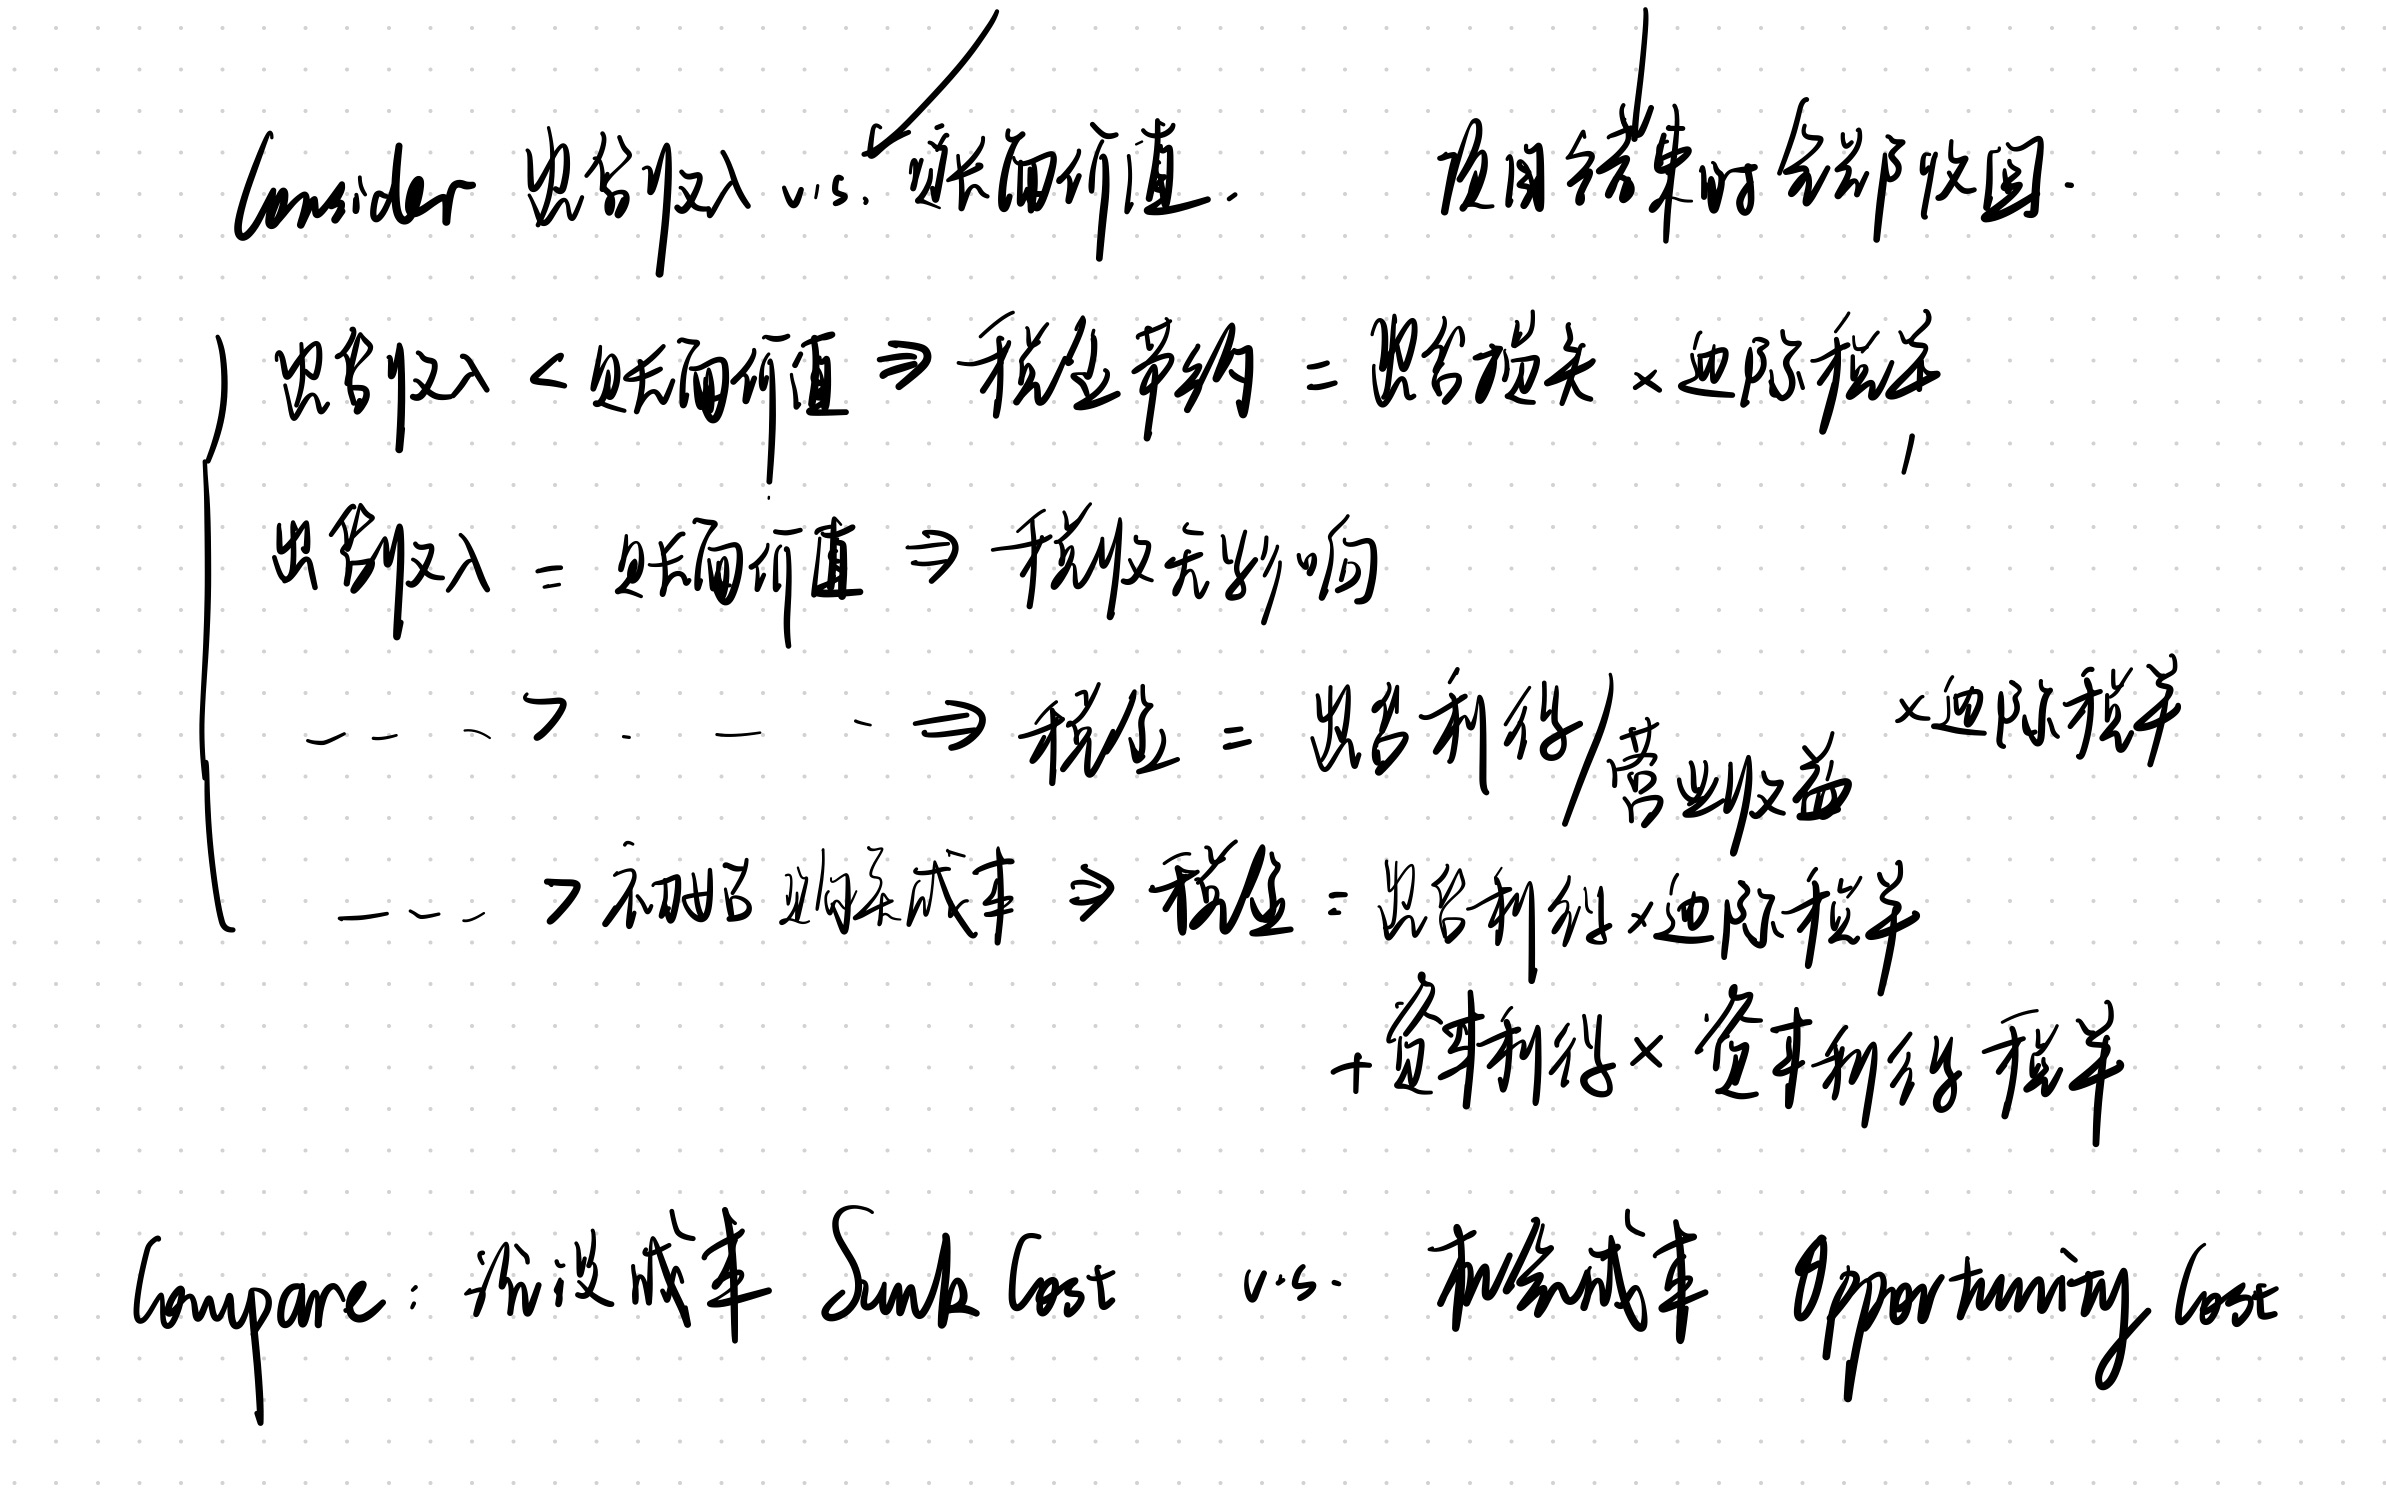 Consider 出售收入 v.s. 账面价值. 在期结束时全部收回.
出售收入 < 账面价值 ⇒ 税金节约 = 出售损失 × 边际税率
出售收入 = 账面价值 ⇒ 税收无影响
---- > - — - ⇒ 税金 = 出售利得/营业收益 × 边际税率
---- > 初始成本 ⇒ 税金 = 出售利得 × 边际税率
+ 资本利得 × 资本利得税率
Compare: 沉没成本 Sunk Cost v.s. 机会成本 Opportunity Cost